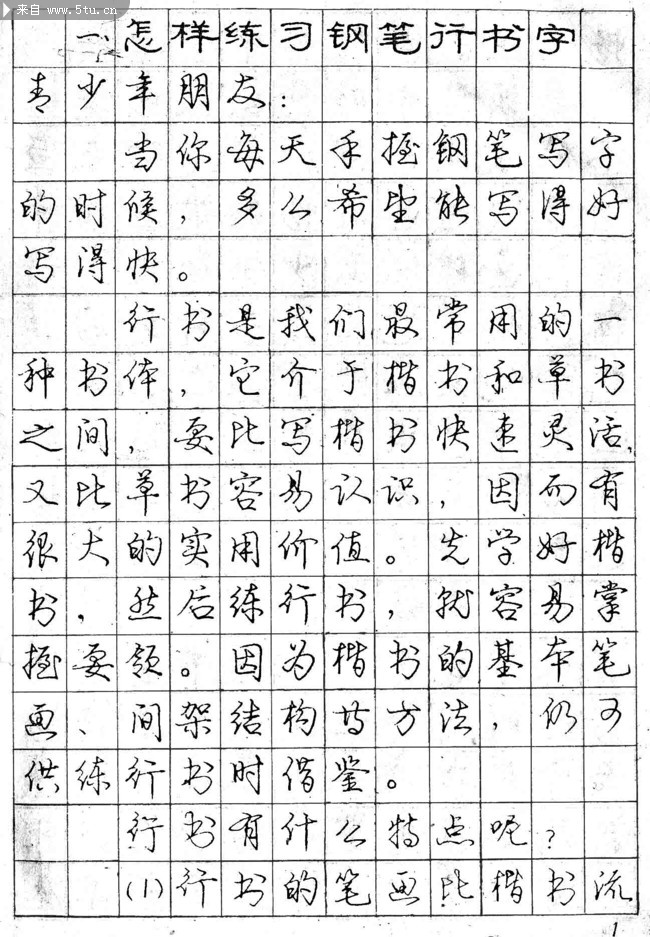 来自 www.5tu.cn
一、怎样练习钢笔行书字
青少年朋友：
当你每天手握钢笔写字
的时候，多么希望能写得好
写得快。
行书是我们最常用的一
种书体，它介于楷书和草书
之间，要比写楷书快速灵活，
又比草书容易认识，因而有
很大的实用价值。先学好楷
书，然后练行书，就容易掌
握要领。因为楷书的基本笔
画、间架结构等方法，仍可
供练行书时借鉴。
行书有什么特点呢？
(1)行书的笔画比楷书流
1